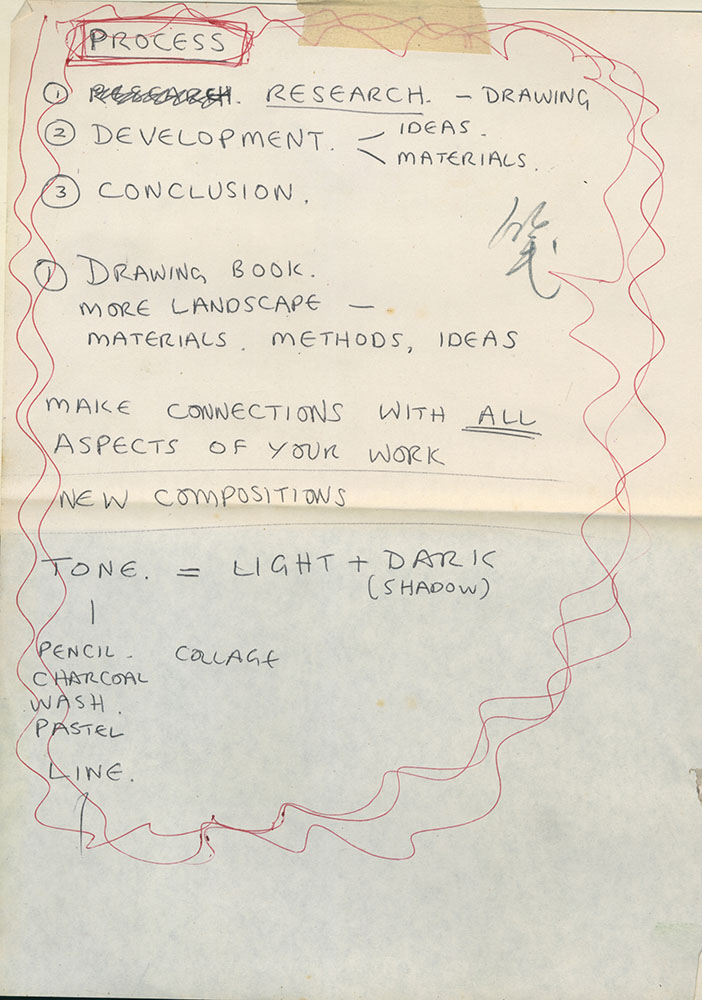 PROCESS
① RESEARCH. RESEARCH. – DRAWING
② DEVELOPMENT. IDEAS.
MATERIALS.
③ CONCLUSION.
笔
① DRAWING BOOK.
MORE LANDSCAPE —
MATERIALS. METHODS, IDEAS
MAKE CONNECTIONS WITH ALL
ASPECTS OF YOUR WORK
NEW COMPOSITIONS
TONE. = LIGHT + DARK
(SHADOW)
PENCIL. COLLAGE
CHARCOAL
WASH.
PASTEL
LINE.